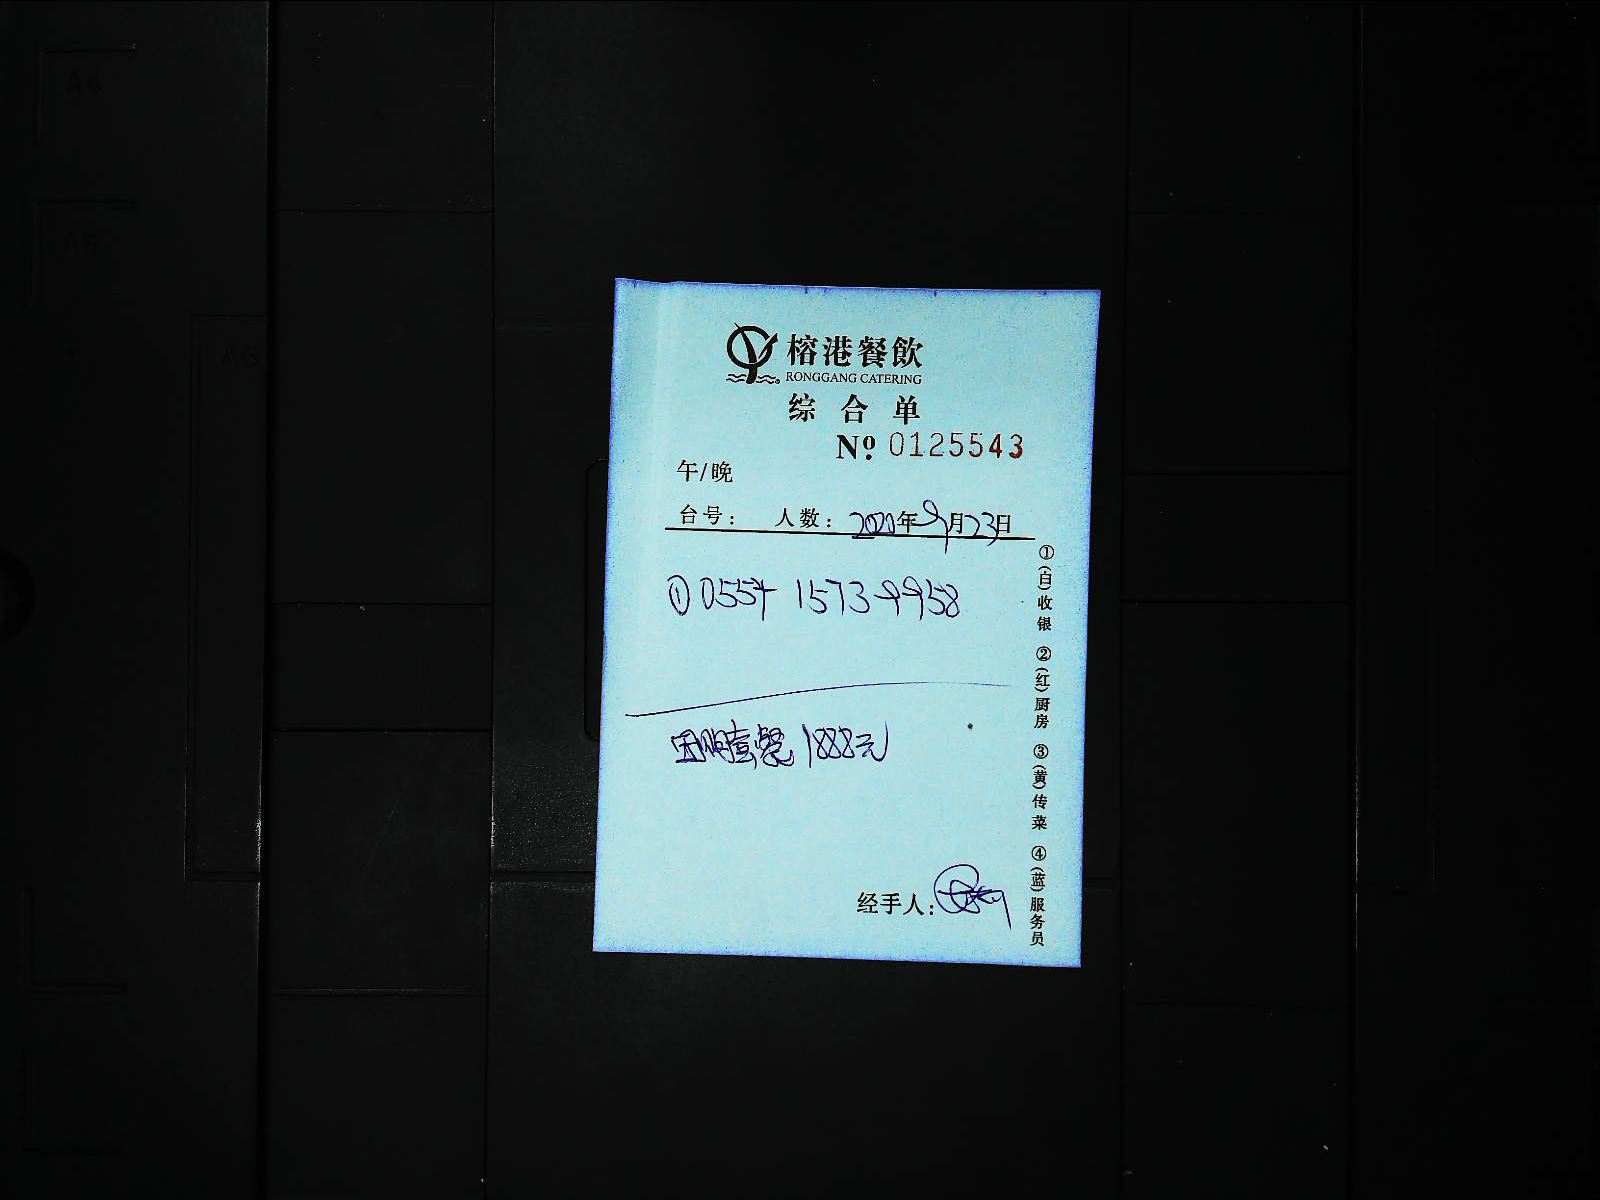 榕港餐飲
RONGGANG CATERING
综合单
Nº 0125543
午/晚
台号： 人数： 2020年9月23日
① 0554 1573 9958
团购套餐 1888元
经手人：
①(白)收银 ②(红)厨房 ③(黄)传菜 ④(蓝)服务员